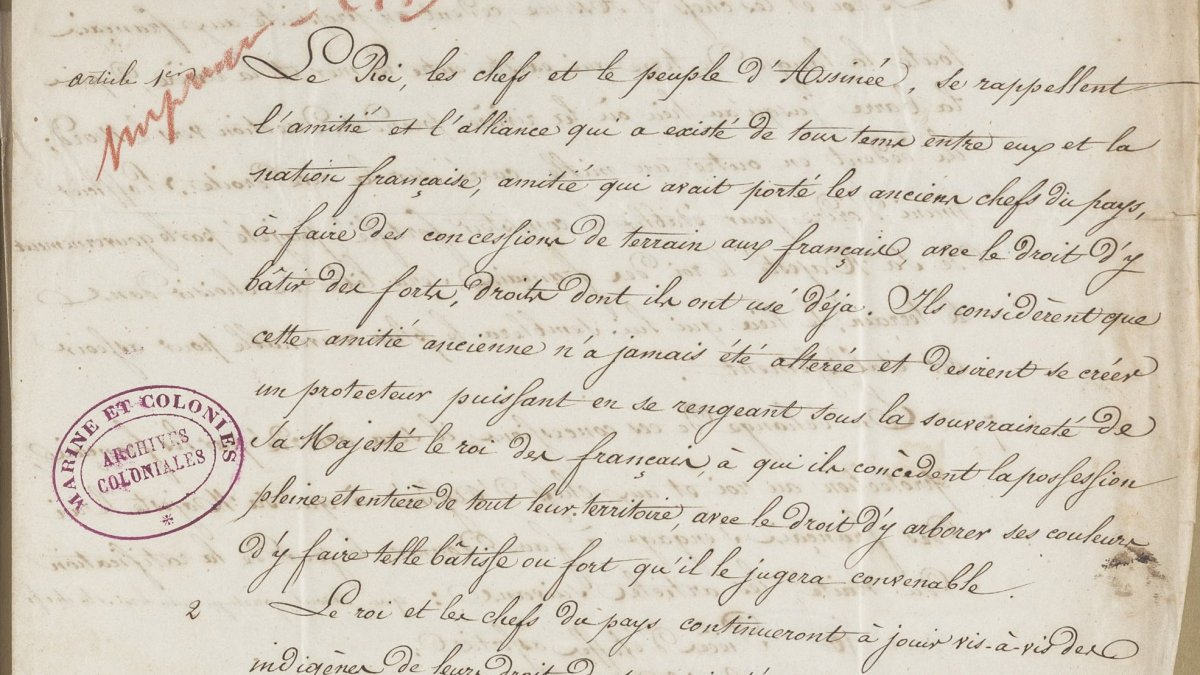 article 1er
Le Roi, les chefs et le peuple d'Assinée, se rappellent
l'amitié et l'alliance qui a existé de tous tems entre eux et la
nation française, amitié qui avait porté les anciens chefs du pays,
à faire des concessions de terrain aux français avec le droit d'y
bâtir des forts, droits dont ils ont usé déja. Ils considèrent que
cette amitié ancienne n'a jamais été alterée et desirent se créer
un protecteur puissant en se rengeant sous la souveraineté de
Sa Majesté le roi des français, à qui ils concèdent la possession
pleine et entière de tout leur territoire, avec le droit d'y arborer ses couleurs
d'y faire telle bâtisse ou fort qu'il le jugera convenable.
2 Le roi et les chefs du pays continueront à jouir vis-à-vis des
indigènes de leurs droit
MARINE ET COLONIES
ARCHIVES
COLONIALES